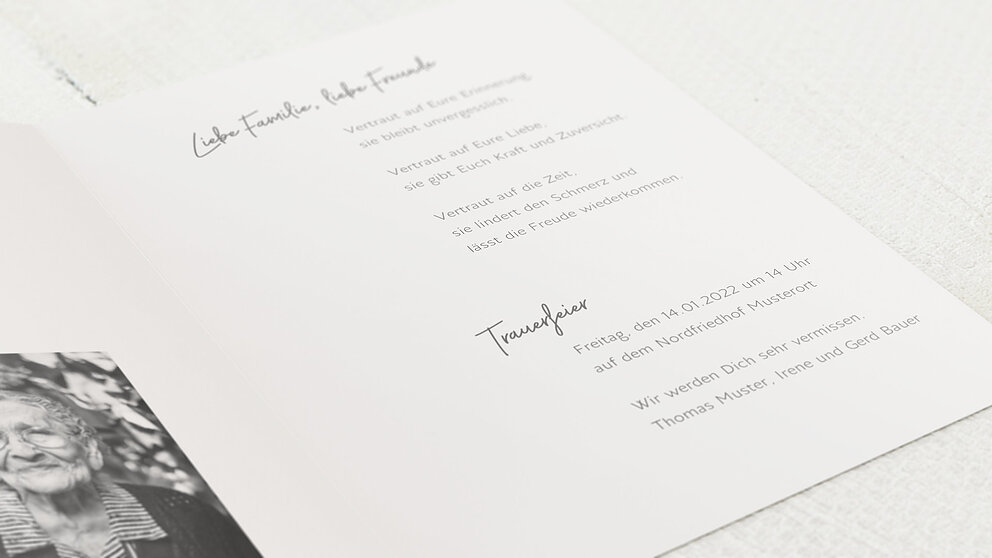 Liebe Familie, liebe Freunde
Vertraut auf Eure Erinnerung,
sie bleibt unvergesslich.
Vertraut auf Eure Liebe,
sie gibt Euch Kraft und Zuversicht.
Vertraut auf die Zeit,
sie lindert den Schmerz und
lässt die Freude wiederkommen.
Trauerfeier
Freitag, den 14.01.2022 um 14 Uhr
auf dem Nordfriedhof Musterort
Wir werden Dich sehr vermissen.
Thomas Muster, Irene und Gerd Bauer